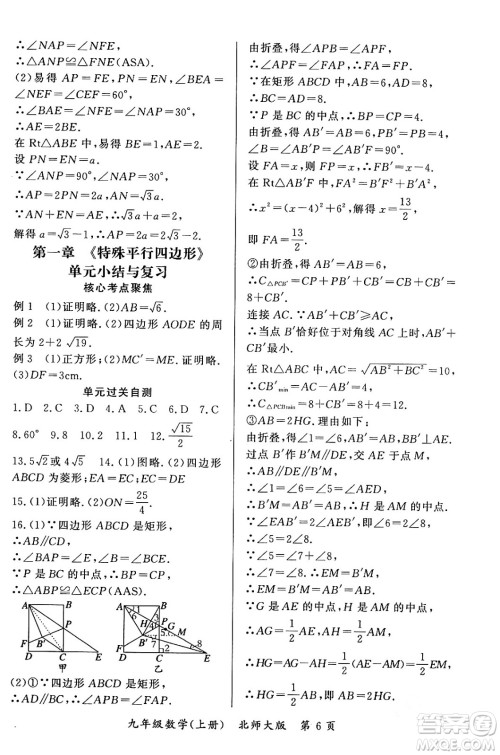 ∴∠NAP=∠NFE,
∴△ANP≌△FNE(ASA).
(2)易得 AP=FE,PN=EN,∠BAE
=∠NEF=∠CEF=60°,
∴∠BAE=∠NFE=∠NEF=30°.
∴AE=2BE.
在 Rt△ABE 中,易得 BE=1,
∴AE=2.
设 PN=EN=a.
∵∠ANP=90°,∠NAP=30°,
∴AP=2PN=2a,∴AN=√3a,
∵AN+NE=AE=2,∴√3a+a=2,
解得 a=√3-1,∴AP=2a=2√3-2.
第一章 《特殊平行四边形》
单元小结与复习
核心考点聚焦
例 1 (1)证明略.(2)BM=√6.
例 2 (1)证明略.(2)四边形 AODE 的周
长为 2+2√19.
例 3 (1)正方形;(2)MC′=ME.证明略.
(3)DF=3cm.
单元过关自测
1.D 2.D 3.B 4.C 5.D 6.C 7.C
8.60° 9.8 10.1 11.22.5 12.√15/2
13.5√2或4√5 14.(1)图略.(2)四边形
ABCD 为菱形;理由略.
15.(1)证明略.(2)ON=25/4.
16.(1)∵四边形 ABCD 是矩形,
∴AB∥CD.∴∠BAP=∠E,∠B=∠BCE.
∵P 是 BC 的中点,∴BP=CP.
∴△ABP≌△ECP(AAS).
A B A B
P H G P
F B′ F B′
D C E D M C E
甲 乙
(2)①∵四边形 ABCD 是矩形,
∴AD∥BC.∴∠APB=∠FAP.
由折叠,得∠APB=∠APF,
∴∠FAP=∠APF,∴FA=FP.
∵在矩形 ABCD 中,BC=AD,AD=8,
∴BC=AD=8.
∵P 是 BC 的中点,∴BP=CP=4.
由折叠,得 AB′=AB=6,PB′=PB=4,
∠B=∠AB′P=∠AB′F=90°.
设 FA=x,则 FP=x,∴FB′=x-4.
在 Rt△AB′F 中,AF²=B′F²+B′A²,
∴x²=(x-4)²+6²,解得 x=13/2,
即 FA=13/2.
②由折叠,得 AB′=AB=6,B′P=BP=4.
∴C△PCB′=CP+PB′+CB′=8+CB′.
连接 AC.∵AB′+B′C>AC,
∴当点 B′恰好位于对角线 AC 上时,CB′
最小.
在 Rt△ABC 中,AC=√(AB²+BC²)=10,
∴CB′min=AC-AB′=4.
∴C△PCB′min=8+CB′min=12.
(3)AB=2HG.理由如下:
由折叠,得∠1=∠6,AB′=AB,BB′⊥AE.
过点 B′作 B′M∥DE,交 AE 于点 M.
∵AB∥CD,∴AB∥DE∥B′M.
∴∠1=∠6=∠5=∠AED.
∴AB′=B′M=AB.
∴H 是 AM 的中点.
∵∠EB′C=∠AED=∠5,
∴∠7=∠8.∴B′M=EM.
∴B′M=EM=AB′=AB.
∵G 为 AE 的中点,H 是 AM 的中点,
∴AG=1/2AE,AH=1/2AM.
∴HG=AG-AH=1/2(AE-AM)
=1/2EM.
∴HG=1/2AB.∴AB=2HG.
九年级数学(上册) 北师大版 第 6 页